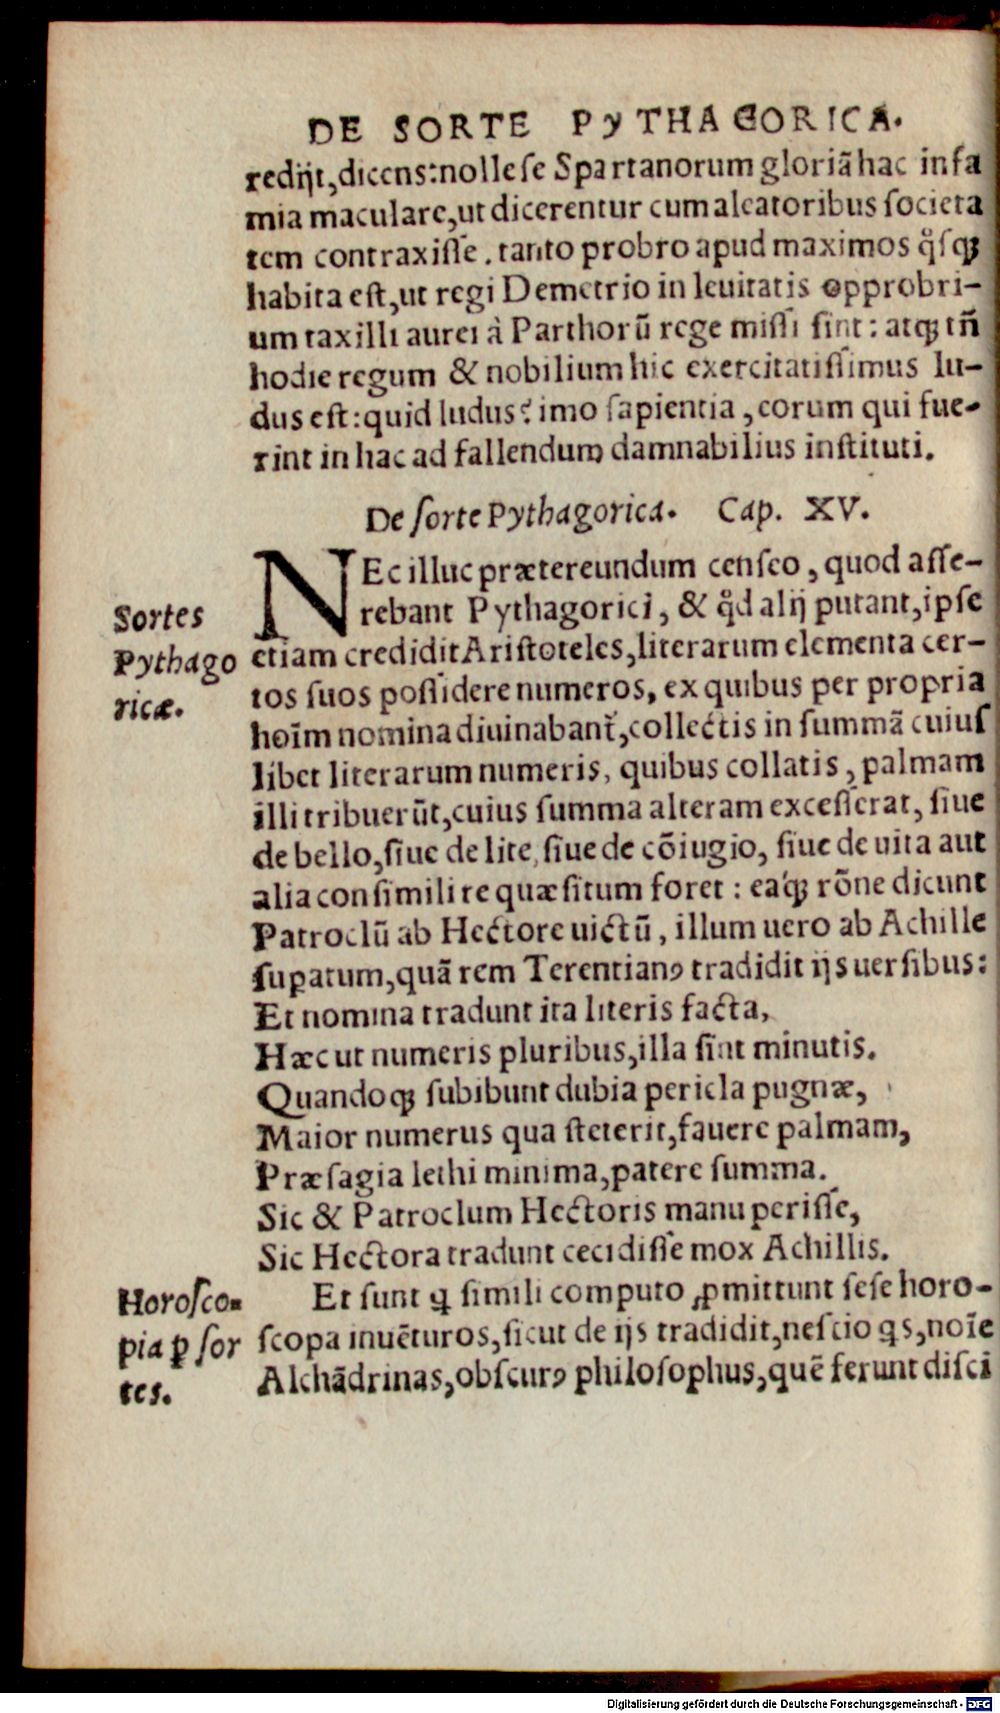 DE SORTE PyTHAGORICA.
redijt,dicens:nolle se Spartanorum gloriã hac infa
mia maculare,ut dicerentur cum aleatoribus societa
tem contraxisse. tanto probro apud maximos q̊sq́ꝫ
habita est,ut regi Demetrio in leuitatis opprobri-
um taxilli aurei à Parthorũ rege missi sint: atqꝫ tñ
hodie regum & nobilium hic exercitatissimus lu-
dus est:quid ludus? imo sapientia, eorum qui fue-
rint in hac ad fallendum damnabilius instituti.
De sorte Pythagorica. Cap. XV.
NEc illuc prætereundum censeo, quod asse-
rebant Pythagorici, & q̊d alij putant, ipse
etiam credidit Aristoteles, literarum elementa cer-
tos suos possidere numeros, ex quibus per propria
hoĩm nomina diuinabant᷑, collectis in summã cuius
libet literarum numeris, quibus collatis, palmam
illi tribuerũt, cuius summa alteram excesserat, siue
de bello, siue de lite, siue de cõiugio, siue de uita aut
alia consimili re quæsitum foret: eaq́ꝫ rõne dicunt
Patroclũ ab Hectore uictũ, illum uero ab Achille
suꝑatum, quã rem Terentianꝰ tradidit ijs uersibus:
Et nomina tradunt ita literis facta,
Hæc ut numeris pluribus, illa sint minutis.
Quandoqꝫ subibunt dubia pericla pugnæ,
Maior numerus qua steterit, fauere palmam,
Præsagia lethi minima, patere summa.
Sic & Patroclum Hectoris manu perisse,
Sic Hectora tradunt cecidisse mox Achillis.
Et sunt ꝗ simili computo ꝓmittunt sese horo-
scopa inuẽturos, sicut de ijs tradidit, nescio ꝗs, noĩe
Alchãdrinas, obscurꝰ philosophus, quẽ ferunt disci
Sortes
Pythago
ricæ.
Horosco-
pia ꝑ sor
tes.
Digitalisierung gefördert durch die Deutsche Forschungsgemeinschaft - DFG